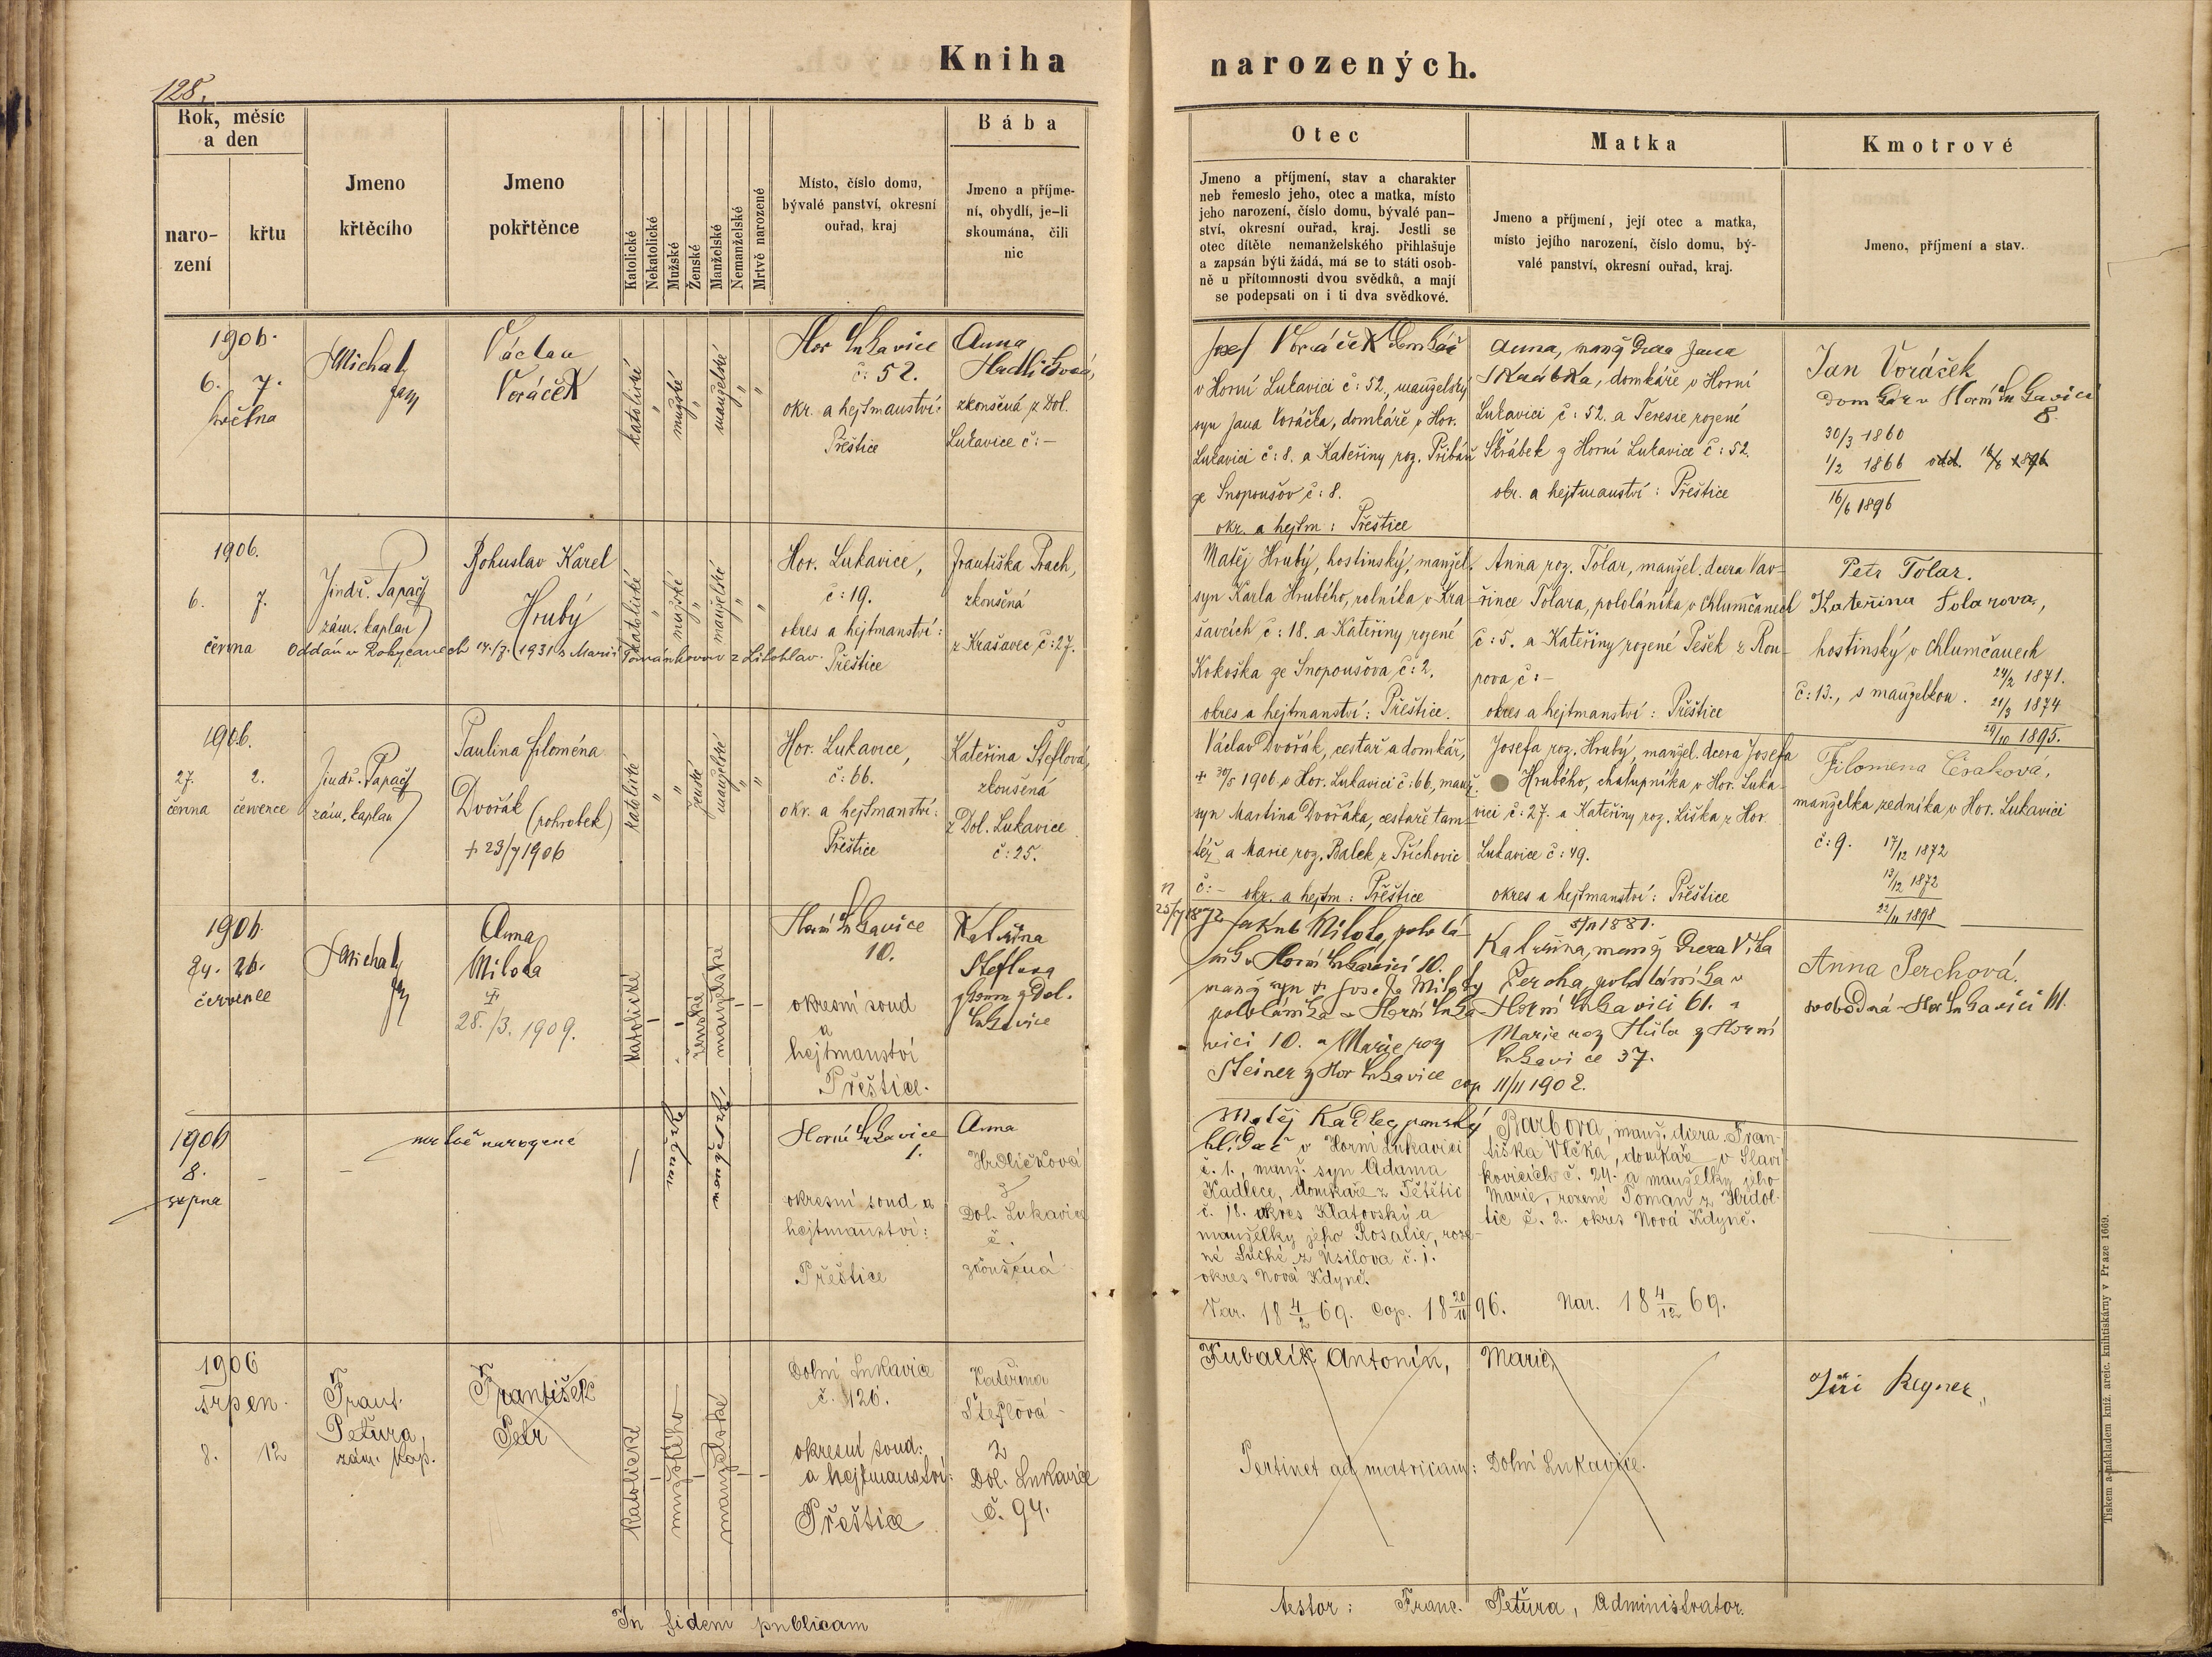 128.
Kniha
narozených.
Rok, měsíc
a den
naro-
zení
křtu
Jmeno
křtěcího
Jmeno
pokřtěnce
Katolické
Nekatolické
Mužské
Ženské
Manželské
Nemanželské
Mrtvě narozené
Místo, číslo domu,
bývalé panství, okresní
ouřad, kraj
Bába
Jmeno a příjme-
ní, obydlí, je-li
skoumána, čili
nic
Otec
Jmeno a příjmení, stav a charakter
neb řemeslo jeho, otec a matka, místo
jeho narození, číslo domu, bývalé pan-
ství, okresní ouřad, kraj. Jestli se
otec dítěte nemanželského přihlašuje
a zapsán býti žádá, má se to státi osob-
ně u přítomnosti dvou svědků, a mají
se podepsati on i ti dva svědkové.
Matka
Jmeno a příjmení, její otec a matka,
místo jejího narození, číslo domu, bý-
valé panství, okresní ouřad, kraj.
Kmotrové
Jmeno, příjmení a stav.
1906.
6. 7.
Michal
Václav
Voráček
katolické
mužské
manželské
Hor Lukavice
č: 52.
okr. a hejtmanství:
Přeštice
Anna
zkoušená z Dol.
Lukavice č: –
Josef Voráček domkář
v Horní Lukavici č: 52., manželský
syn Jana Voráčka, domkáře v Hor.
Lukavici č: 8. a Kateřiny roz. Přibáň
ze Snopoušov č: 8.
okr. a hejtm: Přeštice
Anna, manž dcera Jana
Skrábka, domkáře v Horní
Lukavici č: 52. a Teresie rozené
Škrábek z Horní Lukavice č: 52.
okr. a hejtmanství: Přeštice
Jan Voráček
domkář v Horní Lukavici
8.
30/3 1860
1/2 1866 odd. 16/6 1896
16/6 1896
1906.
6. 7.
června
Jindř. Papač
zám. kaplan
Bohuslav Karel
Hrubý
Oddán v Rokycanech 14./7. 1931 s Marií Tománkovou z Litohlav.
katolické
mužské
manželské
Hor. Lukavice,
č: 19.
okres a hejtmanství:
Přeštice
Františka Prach,
zkoušená
z Krašavec č: 27.
Matěj Hrubý, hostinský, manžel.
syn Karla Hrubého, rolníka v Kra-
šavcích č: 18. a Kateřiny rozené
Kokoška ze Snopoušova č: 2.
okres a hejtmanství: Přeštice.
Anna roz. Tolar, manžel. dcera Vav-
řince Tolara, pololáníka v Chlumčanech
č: 5. a Kateřiny rozené Pešek z Rou-
pova č: –
okres a hejtmanství: Přeštice
Petr Tolar.
Kateřina Tolarova,
hostinský v Chlumčanech
č: 13., s manželkou.
24/2 1871.
21/3 1874
29/10 1895.
1906.
27. 2.
června července
Jindř. Papač
zám. kaplan
Paulina Filoména
Dvořák (pohrobek)
+ 23/7 1906
katolické
ženské
manželské
Hor. Lukavice,
č: 66.
okr. a hejtmanství:
Přeštice
Kateřina Šteflová,
zkoušená
z Dol. Lukavice
č: 25.
Václav Dvořák, cestář a domkář,
+ 30/5 1906 v Hor. Lukavici č: 66, manž.
syn Martina Dvořáka, cestaře tam-
též a Marie roz. Balek z Příchovic
č: – okr. a hejtm: Přeštice
Josefa roz. Hrubý, manžel. dcera Josefa
Hrubého, chalupníka v Hor. Luka-
vici č: 27. a Kateřiny roz. Liška z Hor.
Lukavice č: 49.
okres a hejtmanství: Přeštice
Filomena Cesaková,
manželka zedníka v Hor. Lukavici
č: 9. 17/12 1872
13/12 1872
22/11 1898
1906.
24. 26.
července
Michal
Anna
Milota
+
28./3. 1909.
katolické
ženské
manželské
Horní Lukavice
10.
okresní soud
a
hejtmanství
Přeštice.
Kateřina
Steflova
zkoum z Dol.
Lukavice
n 25/7 1872
Jakub Milota, pololá-
ník v Horní Lukavici 10.
manž syn + Josefa Miloty
pololáníka v Horní Luka-
vici 10. a Marie roz
Steiner z Hor Lukavice
5/11 1881.
Kateřina, manž dcera Víta
Percha, pololáníka v
Horní Lukavici 61. a
Marie roz Hůla z Horní
Lukavice 37.
cop 11/11 1902.
Anna Perchová,
svobodná Hor Lukavici 61.
1906
8.
srpna
mrtvě narozené
manželské
Horní Lukavice
1.
okresní soud a
hejtmanství:
Přeštice
Anna
Hrdličková
z
Dol. Lukavice
č.
zkoušená
Matěj Kadlec, panský
hlídač v Horní Lukavici
č. 1., manž. syn Adama
Kadlece, domkáře z Tětětic
č. 18. okres Klatovský a
manželky jeho Rosalie, roze-
né Suché z Úsilova č. 1.
okres Nová Kdyně.
Nar. 18 4/2 69. Cop. 18 20/11 96.
Barbora, manž. dcera Fran-
tiška Vlčka, domkáře v Slaví-
kovicích č. 24. a manželky jeho
Marie, rozené Toman z Hrdol-
tic č. 2. okres Nová Kdyně.
Nar. 18 4/12 69.
1906
srpen.
8. 12
Frant.
Petura,
zám. kap.
František
Petr
katolické
mužského
manželské
Dolní Lukavice
č. 126.
okresní soud:
a hejtmanství:
Přeštice
Kateřina
Šteflová
z
Dol. Lukavice
č. 94.
Kubalík Antonín,
Marie,
Pertinet ad matricam: Dolní Lukavice.
Jiří Regner,
In fidem publicam
testor: Franc. Petura, Administrator.
Tiskem a nákladem kníž. arcib. knihtiskárny v Praze 1669.